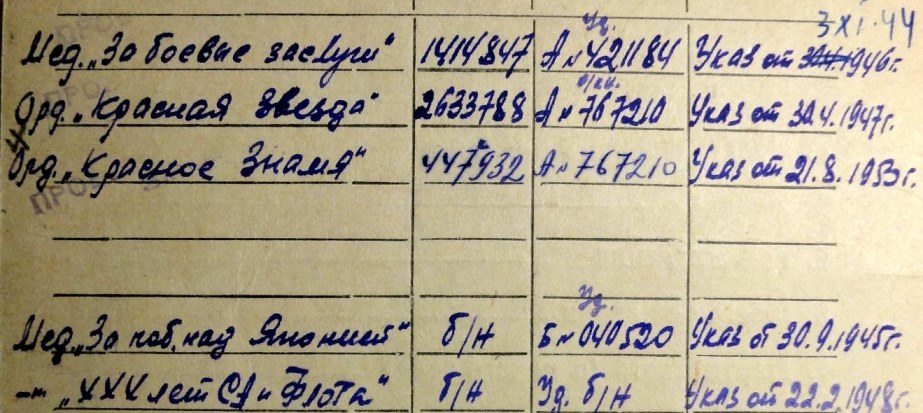 3 XI.44
Уд.
Мед. „За боевые заслуги" 1414847 А № 421184 Указ от 30.4.1946г.
о/кн.
Орд. „Красная Звезда" 2633788 А № 767210 Указ от 30.4.1947г.
Орд. „Красное Знамя" 447932 А № 767210 Указ от 21.8.1953г.
Уд.
Мед. „За поб. над Японией" б/н Б № 040520 Указ от 30.9.1945г.
-"- „XXX лет СА и Флота" б/н Уд. б/н Указ от 22.2.1948г.